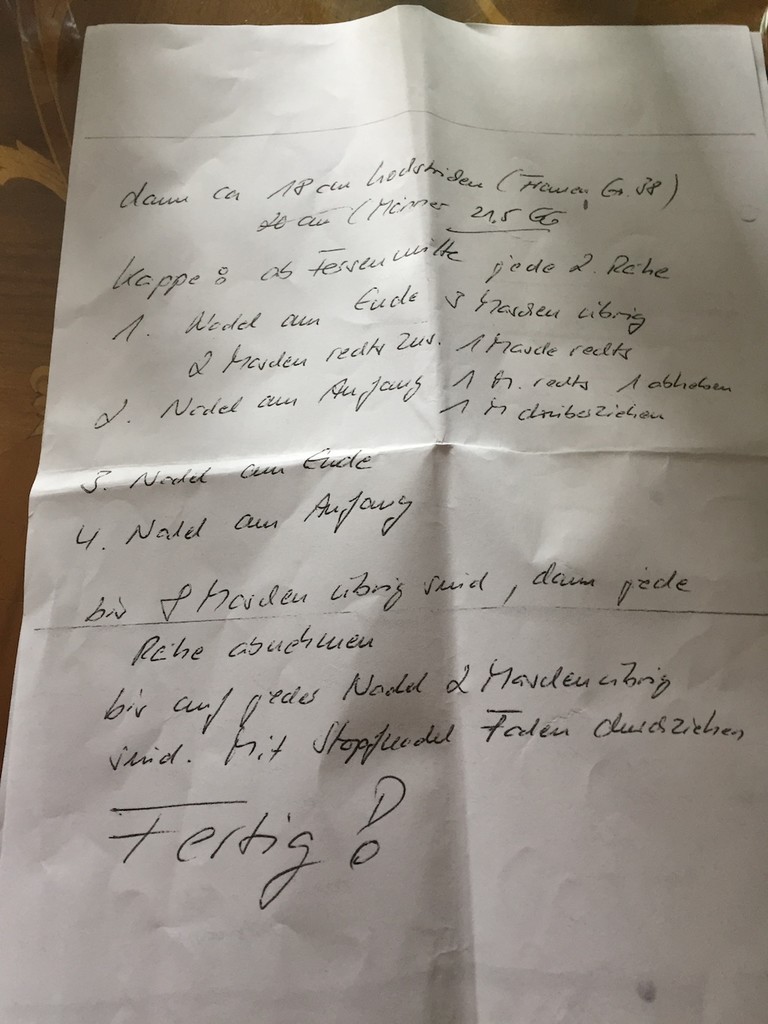 dann ca 18 cm hochstricken (Frauen Gr. 38)
20 cm (Männer 21,5
Kappe: ab Fersenmitte jede 2. Reihe
1. Nadel am Ende 3 Maschen übrig
2 Maschen rechts zus. 1 Masche rechts
2. Nadel am Anfang 1 M. rechts 1 abheben
1 M drüberziehen
3. Nadel am Ende
4. Nadel am Anfang
bis 8 Maschen übrig sind, dann jede
Reihe abnehmen
bis auf jeder Nadel 2 Maschen übrig
sind. Mit Stopfnadel Faden durchziehen
Fertig!